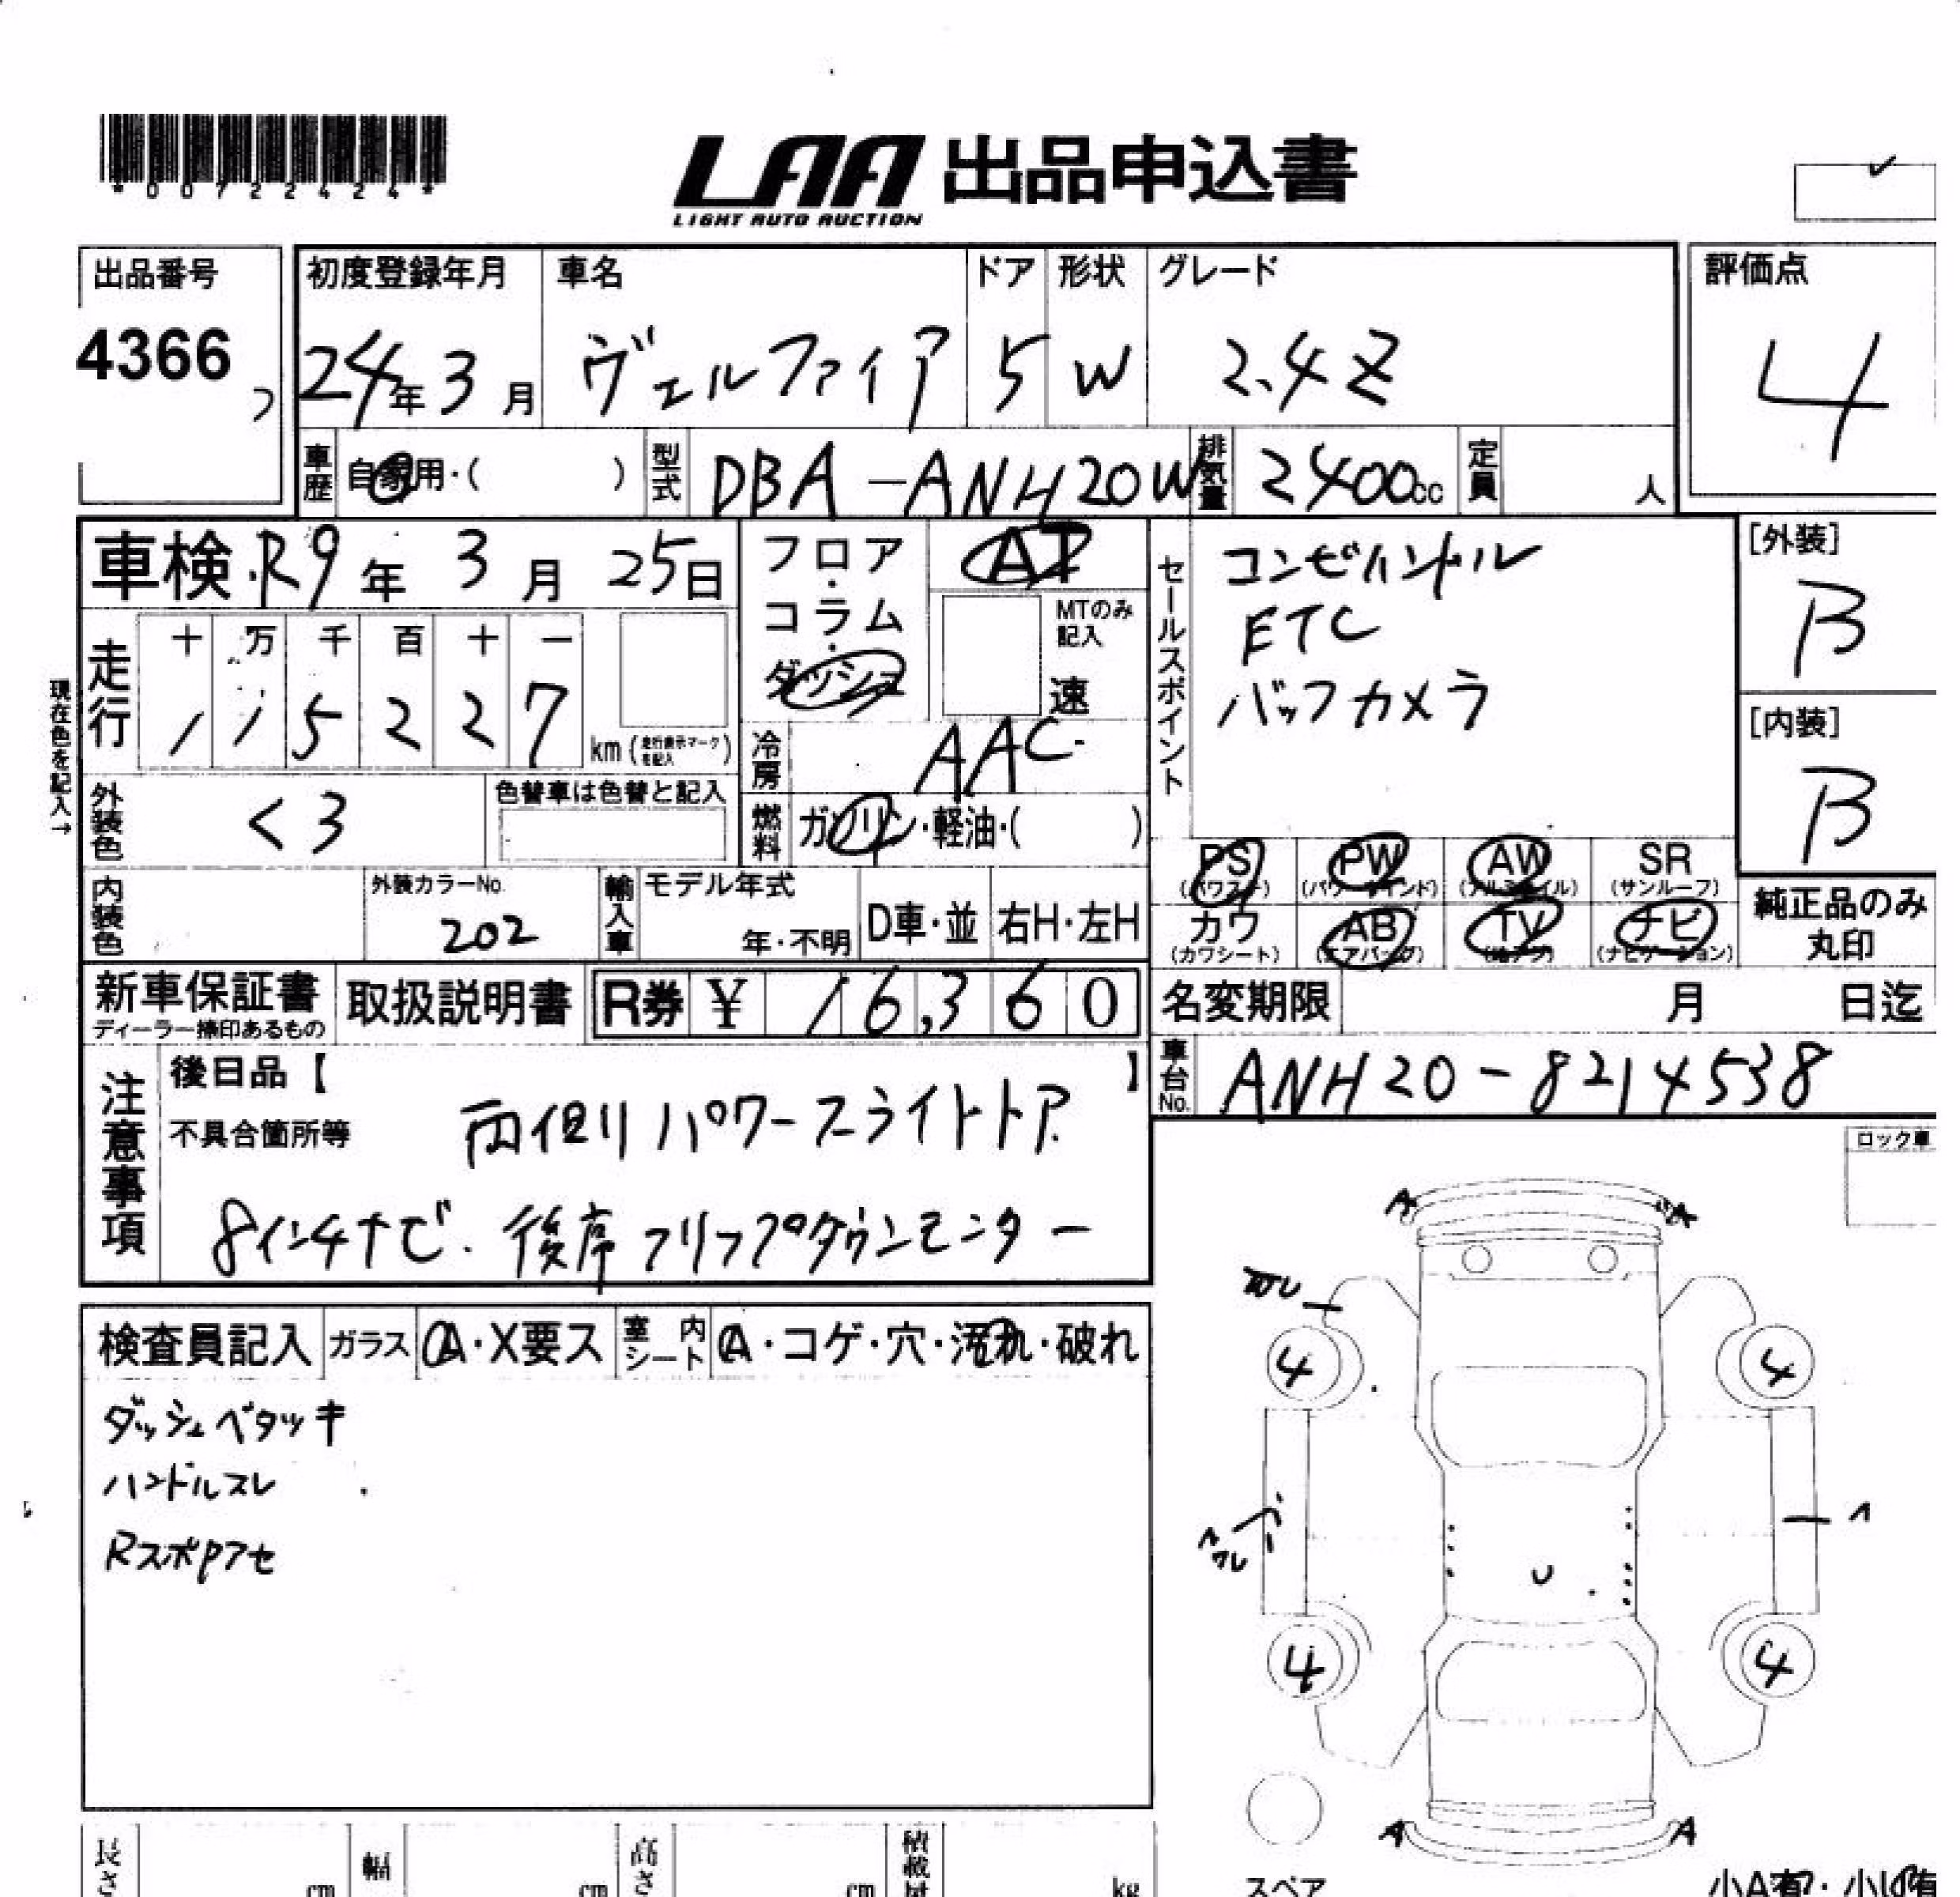 *00722424*
LAA 出品申込書
LIGHT AUTO AUCTION
出品番号
4366
初度登録年月 車名 ドア 形状 グレード
24年3月 ヴェルファイア 5 W 2.4Z
評価点
4
車歴 自家用・( ) 型式 DBA-ANH20W 排気量 2400cc 定員 人
車検 R9年3月25日
フロア・コラム・ダッシュ
AT
MTのみ記入
速
走行
十 万 千 百 十 一
1 1 5 2 2 7
km (走行表示マークを記入)
現在色を記入→
冷房 AAC
外装色 クロ
色替車は色替と記入
燃料 ガソリン・軽油・( )
セールスポイント
コンビハンドル
ETC
バックカメラ
[外装]
B
[内装]
B
PS PW AW SR
(パワステ) (パワーウインド) (アルミホイル) (サンルーフ)
カワ AB TV ナビ
(カワシート) (エアバッグ) (ナビゲーション)
純正品のみ
丸印
内装色
外装カラーNo.
202
輸入車 モデル年式
年・不明 D車・並 右H・左H
新車保証書
ディーラー捺印あるもの
取扱説明書 R券 ¥ 16,360
名変期限 月 日迄
車台No. ANH20-8214538
注意事項
後日品【 】
不具合箇所等
両側パワースライドドア
8インチナビ. 後席フリップダウンモニター
ロック車
検査員記入 ガラス A・X要ス 室内シート A・コゲ・穴・汚れ・破れ
ダッシュベタツキ
ハンドルスレ
RスポPアセ
A A
4 4
U
4 4
A A
スペア
長さ cm 幅 cm 高さ cm 積載量 kg
小A有・小U有